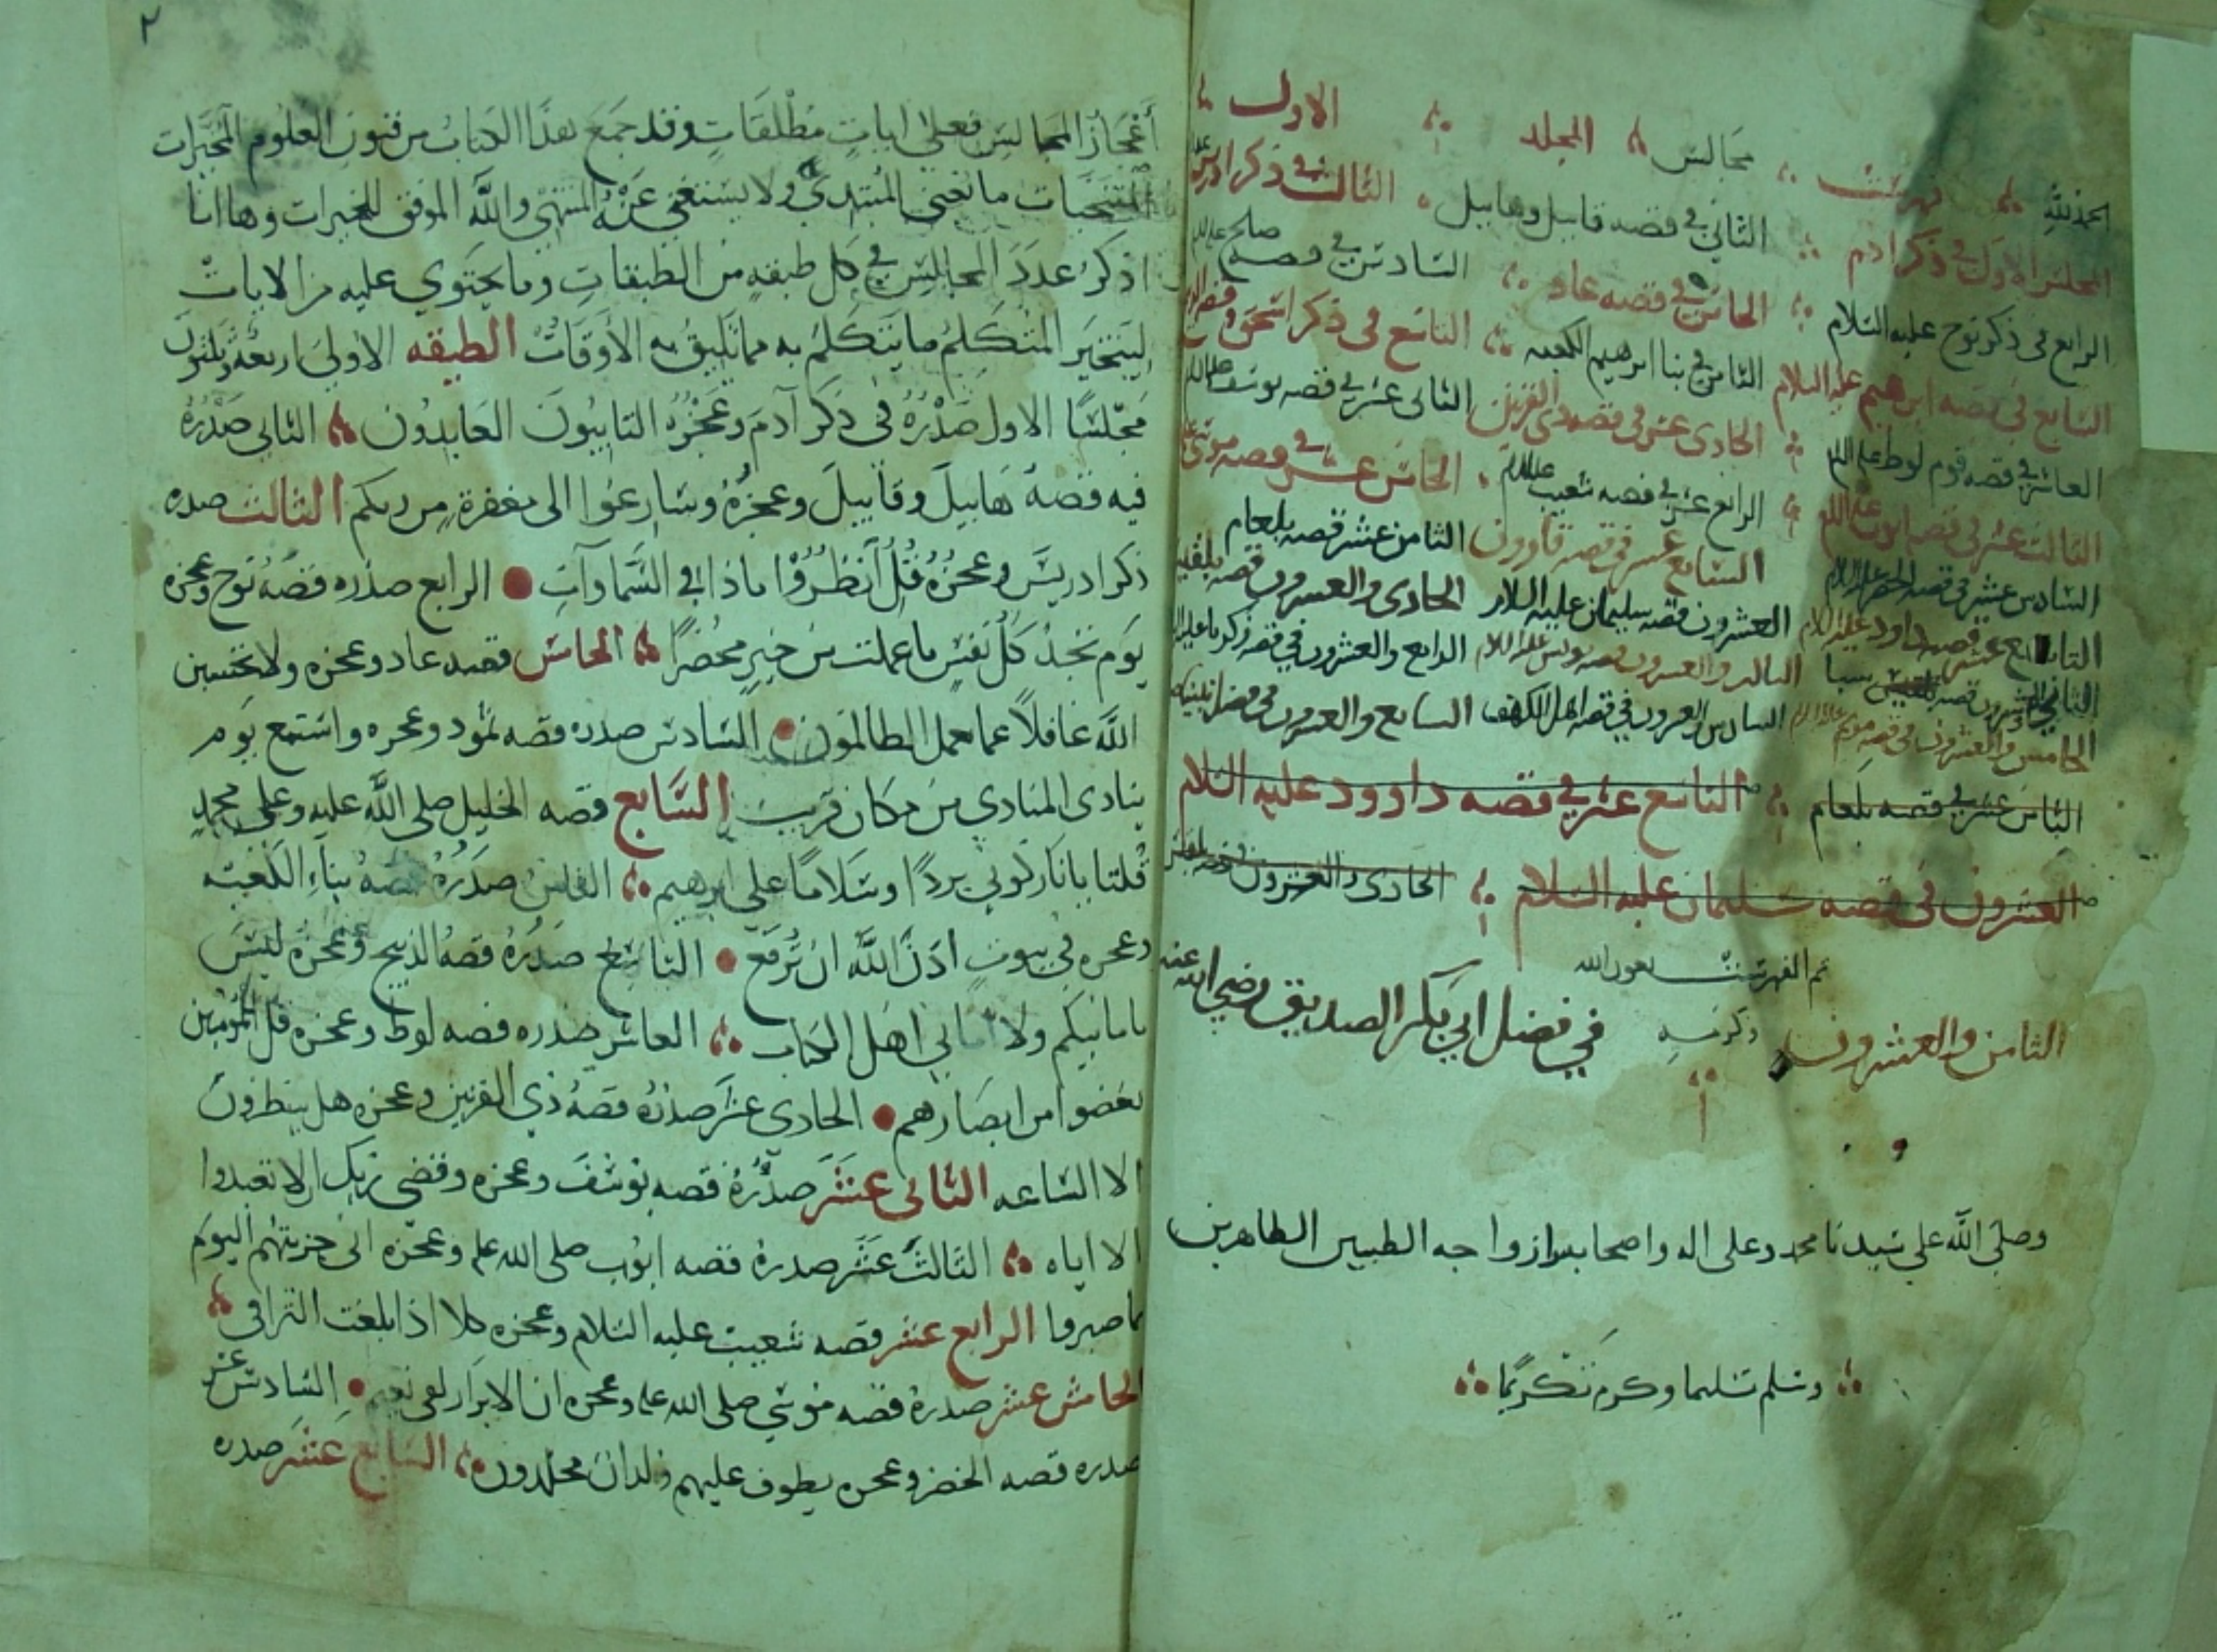 الحمد لله فهرست مجالس المجلد الاول
المجلس الاول في ذكر ادم الثاني في قصه قابيل وهابيل الثالث في ذكر ادريس
الرابع في ذكر نوح عليه السلام الخامس في قصه عاد السادس في قصه صالح
السابع في قصه ابرهيم عليه السلام الثامن في بنا ابرهيم الكعبه التاسع في ذكر اسحق
العاشر في قصه قوم لوط الحادى عشر في قصه ذي القرنين الثانى عشر في قصه يوسف
الثالث عشر في قصه ايوب الرابع عشر في قصه شعيب الخامس عشر في قصه موسى
السادس عشر في قصه الخضر السابع عشر في قصه قارون الثامن عشر قصه بلعام
التاسع عشر قصه داود عليه السلام العشرون قصه سليمان عليه السلام الحادى والعشرون قصه بلقيس
الثاني والعشرون قصه سبا الثالث والعشرون قصه يونس عليه السلام الرابع والعشرون في قصه زكريا
الخامس والعشرون في قصه مريم السادس والعشرون في قصه اهل الكهف السابع والعشرون في فضل نبينا
الثامن عشر في قصه بلعام التاسع عشر في قصه داوود عليه السلام
العشرون في قصه سليمان عليه السلام الحادى والعشرون قصه بلقيس
تم الفهرست بعون الله
الثامن والعشرون ذكر فيه في فضل ابي بكر الصديق رضي الله عنه
وصلى الله علي سيدنا محمد وعلى اله واصحابه وازواجه الطيبين الطاهرين
وسلم تسليما وكرم تكريما
٢
أعجاز المجالس فعلى ايات مطلقات وقد جمع هذا الكتاب من فنون العلوم المخيرات
المنتخبات ما يعني المبتدي ولا يستغني عنه المنتهي والله الموفق للخيرات وها انا
اذكر عدد المجالس في كل طبقه من الطبقات وما يحتوي عليه من الايات
ليتخير المتكلم ما يتكلم به مما تليق به الأوقات الطبقه الاولى اربعة وثلثون
مجلسا الاول صدره في ذكر آدم وعجزه التايبون العابدون الثاني صدره
فيه قصة هابيل وقابيل وعجزه وسارعوا الى مغفرة من ربكم الثالث صدره
ذكر ادريس وعجزه قل أنظروا ماذا في السماوات الرابع صدره قصه نوح وعجزه
يوم تجد كل نفس ما عملت من خير محضرا الخامس قصه عاد وعجزه ولا تحسبن
الله غافلا عما يعمل الظالمون السادس صدره قصه ثمود وعجزه واستمع يوم
ينادى المنادي من مكان قريب السابع قصه الخليل صلى الله عليه وعلى محمد
قلنا يا نار كوني بردا وسلاما على ابرهيم الثامن صدره قصه بناء الكعبه
وعجزه في بيوت اذن الله ان ترفع التاسع صدره قصه الذبيح وعجزه ليس
بامانيكم ولا اماني اهل الكتاب العاشر صدره قصه لوط وعجزه قل للمؤمنين
يغضوا من ابصارهم الحادى عشر صدره قصه ذي القرنين وعجزه هل ينظرون
الا الساعه الثانى عشر صدره قصه يوسف وعجزه وقضى ربك الا تعبدوا
الا اياه الثالث عشر صدره قصه ايوب صلى الله عليه وعجزه انى جزيتهم اليوم
بما صبروا الرابع عشر قصه شعيب عليه السلام وعجزه كلا اذا بلغت التراقى
الخامس عشر صدره قصه موسى صلى الله عليه وعجزه ان الابرار لفي نعيم السادس عشر
صدره قصه الخضر وعجزه يطوف عليهم ولدان مخلدون السابع عشر صدره